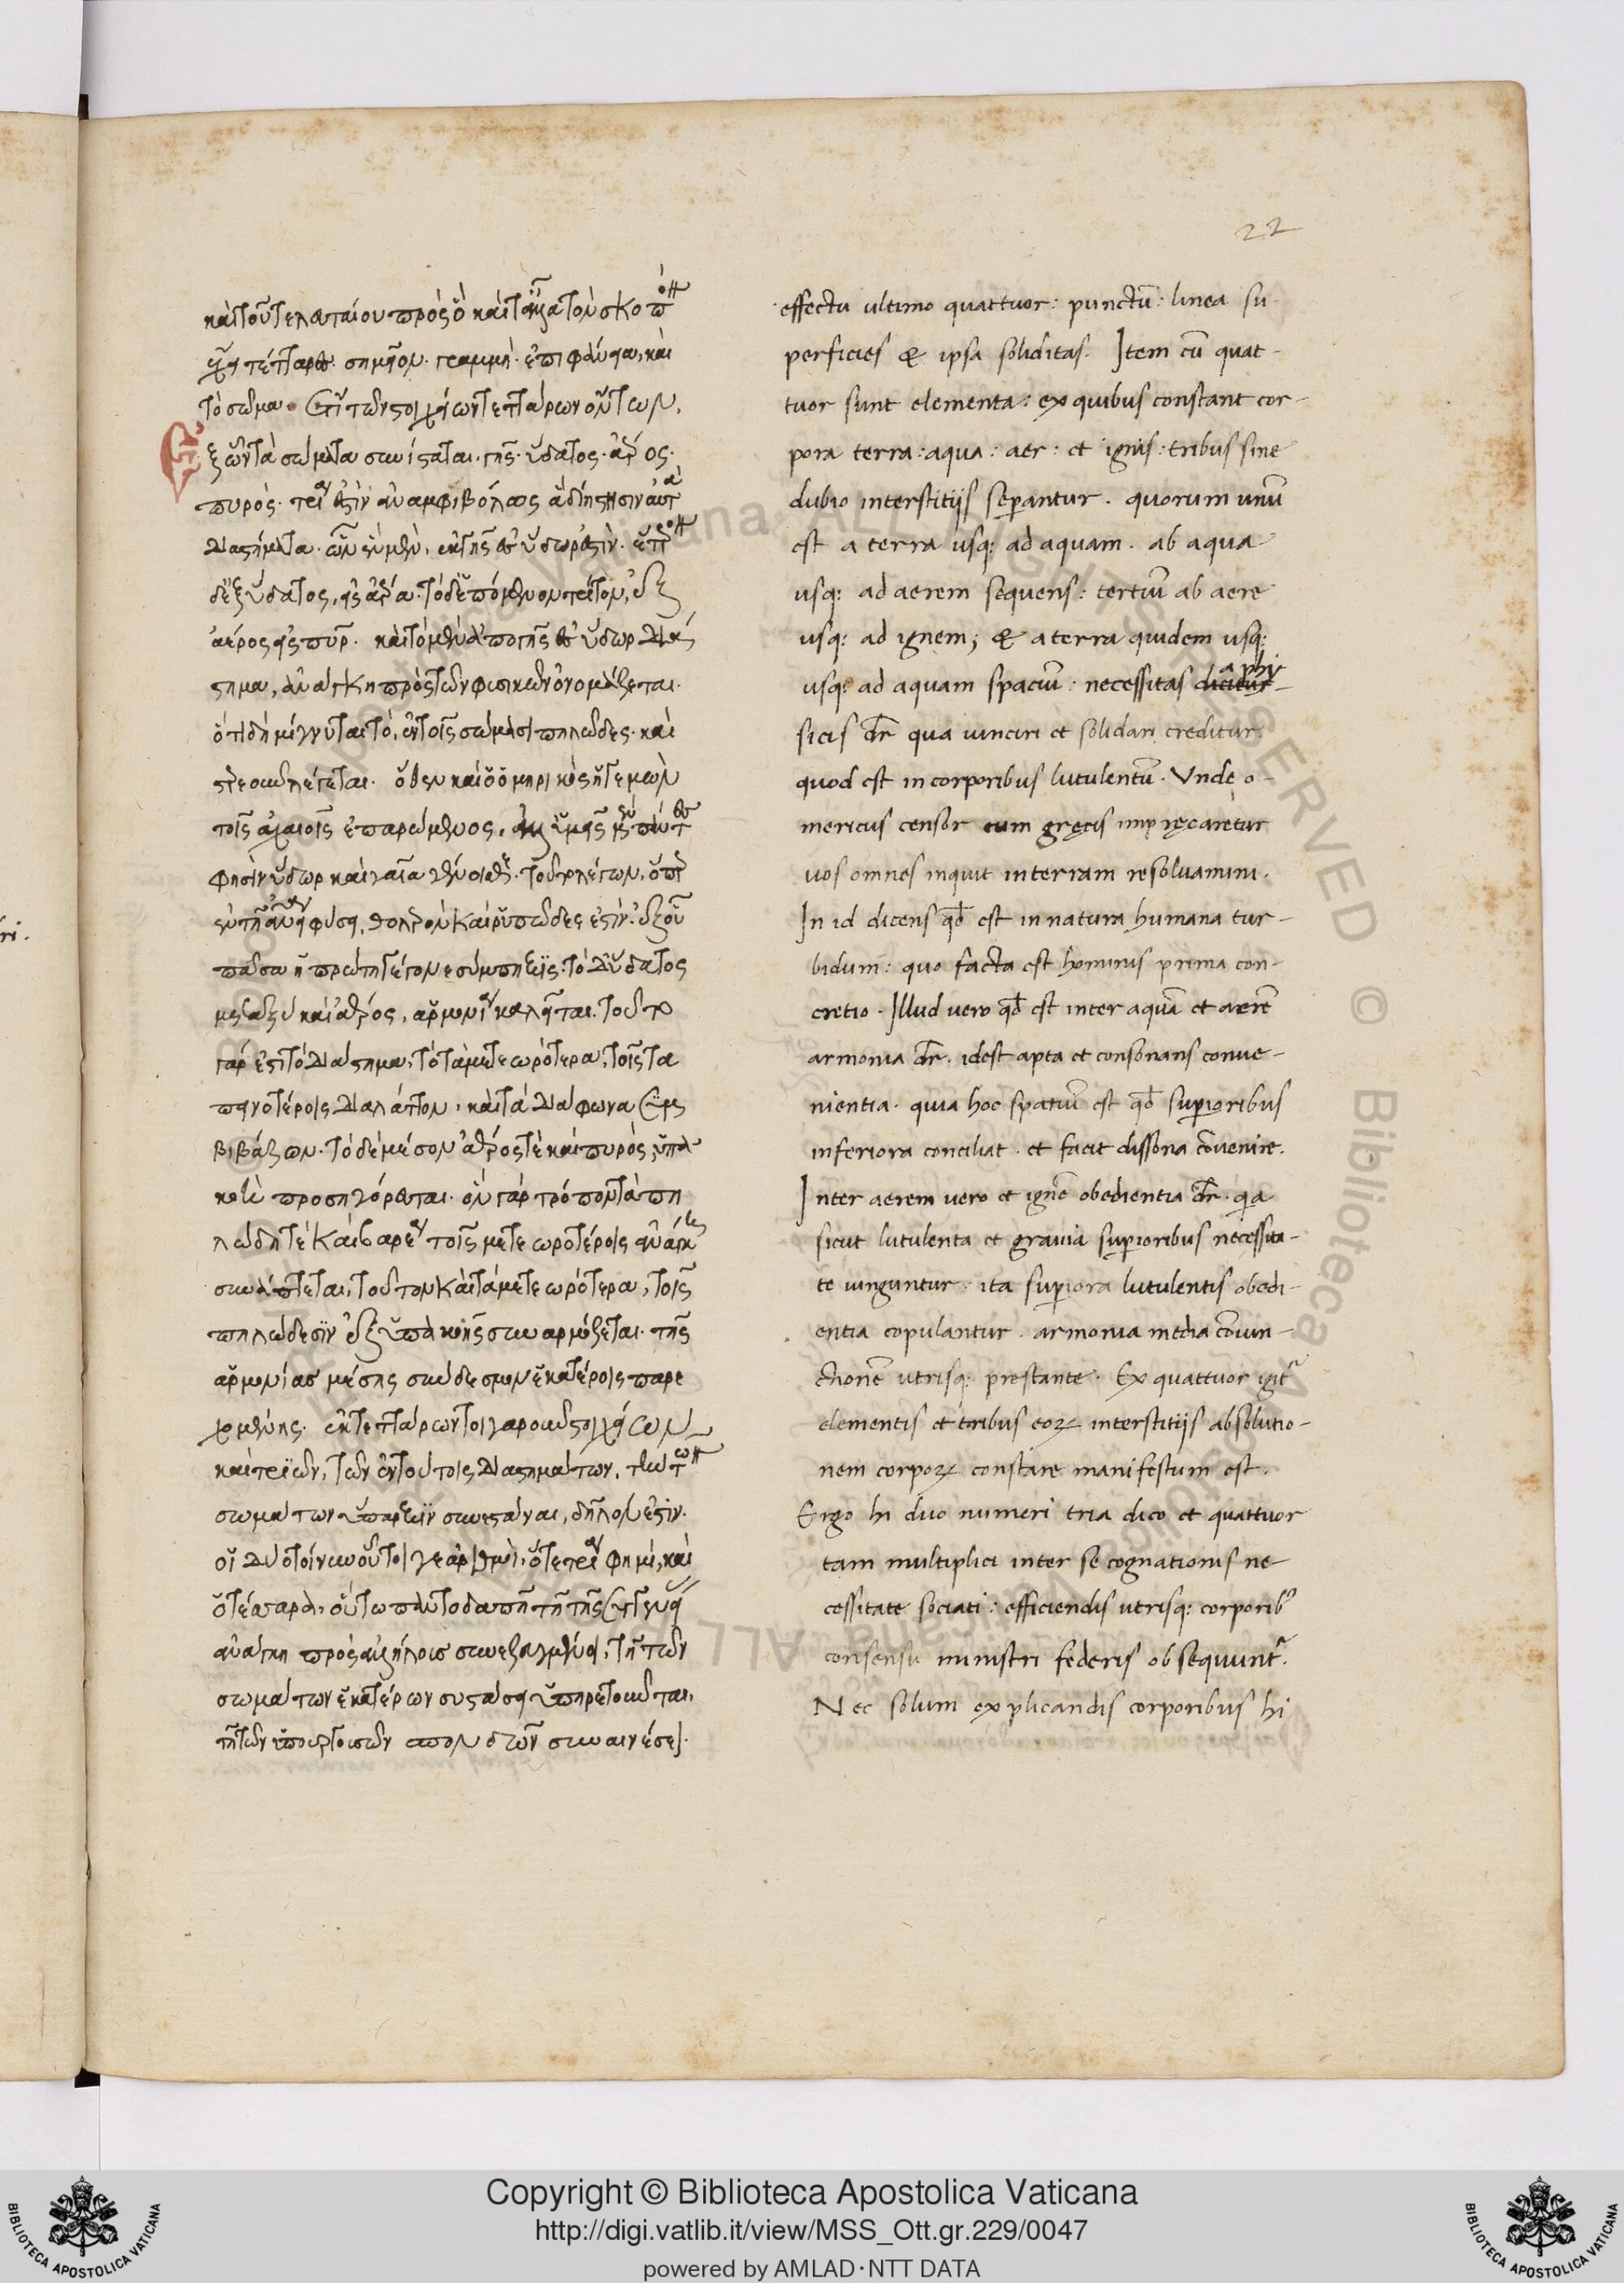 22
καὶ τοῦ τελευταίου πρὸς ὃ καὶ τἄλλα τὸν σκοπὸν
ἔχει τέτταρα. σημεῖον. γραμμή. ἐπιφάνεια, καὶ
τὸ σῶμα. ἔτι τῶν στοιχείων τεττάρων ὄντων,
ἐξ ὧν τὰ σώματα συνίσταται. γῆς. ὕδατος. ἀέρος.
πυρός. τρία ἐστὶν ἀναμφιβόλως ἃ διΐστησιν αὐτὰ
διαστήματα. ὧν ἓν μὲν, ἐκ γῆς ἐφ' ὕδωρ ἐστίν.
δὲ ἐξ ὕδατος, εἰς ἀέρα. τὸ δὲ ἑπόμενον τρίτον, ἐξ
ἀέρος εἰς πῦρ. καὶ τὸ μὲν ἀπὸ γῆς ἐφ' ὕδωρ διά
στημα, ἀνάγκη πρὸς τῶν φυσικῶν ὀνομάζεται.
ὅτι δὴ μίγνυται τὸ, ἐν τοῖς σώμασι πηλῶδες. καὶ
ὅθεν καὶ ὁ ὁμηρικὸς ἡγεμὼν
τοῖς ἀχαιοῖς ἐπαρώμενος, ἀλλ' ὑμεῖς μὲν πάντες
φησὶν ὕδωρ καὶ γαῖα γένοισθε. τοῦτο λέγων, ὅπερ
ἐν τῇ ἀνθρωπείᾳ φύσει, θολερὸν καὶ ῥυπῶδες ἐστίν. ἐξ οὗ
πᾶσα ἡ πρώτη γέγονε σύμπηξις. τὸ δ' ὕδατος
μεταξὺ καὶ ἀέρος, ἁρμονία καλεῖται. τοῦτο
γάρ ἐστι τὸ διάστημα, τὸ τὰ μετεωρότερα, τοῖς τα
πεινοτέροις διαλάττον, καὶ τὰ διάφωνα συμ
βιβάζον. τὸ δὲ μέσον ἀέρος τὲ καὶ πυρὸς, ὑπα
κοὴ προσηγόρευται. ὃν γὰρ τρόπον τὰ πη
λώδη τὲ καὶ βαρέα τοῖς μετεωροτέροις ἀνάγκῃ
συνάπτεται, τοῦτον καὶ τὰ μετεωρότερα, τοῖς
πηλώδεσιν ἐξ ὑπακοῆς συναρμόζεται. τῆς
ἁρμονίας μέσης σύνδεσμον ἑκατέροις παρε
χομένης. ἐκ τεττάρων τοιγαροῦν στοιχείων
καὶ τριῶν, τῶν ἐν τούτοις διαστημάτων, τὴν τῶν
σωμάτων ὕπαρξιν συνεστάναι, δῆλον ἐστίν.
οἱ δύο τοίνυν οὗτοι γε ἀριθμοὶ, ὅ τε τρία φημὶ, καὶ
ὁ τέσσαρα, οὕτω παντοδαπῇ τῇ τῆς συγγενείας
ἀνάγκῃ πρὸς ἀλλήλους συνεζευγμένοι, τῇ τῶν
σωμάτων ἑκατέρων συστάσει ὑπηρετοῦνται,
effectu ultimo quattuor: punctū: linea su
perficies & ipsa soliditas. Item cū quat-
tuor sunt elementa: ex quibus constant cor-
pora terra: aqua: aer: et ignis: tribus sine
dubio interstitijs sep̄antur. quorum unū
est a terra usq: ad aquam. ab aqua
usq: ad aerem sequens: tertiū ab aere
usq: ad ignem; & a terra quidem usq:
usq: ad aquam spaciū: necessitas dicitur a phy
sicis dr̄ qua iunciri et solidari creditur
quod est in corporibus lutulentū. Unde o-
mericus censor cum gręcis impręcaretur
uos omnes inquit interram resoluamini.
In id dicens qđ est in natura humana tur-
bidum: quo facta est hominis prima con-
cretio. Illud uero qđ est inter aquā et aerē
armonia dr̄. idest apta et consonans conue-
nientia. quia hoc spatiū est qđ sup̄ioribus
inferiora conciliat. et facit dissona cōuenire.
Inter aerem uero et ignē obedientia dr̄. q̄a
sicut lutulenta et grauia sup̄ioribus necessita-
te iunguntur: ita sup̄iora lutulentis obedi-
entia copulantur. armonia media cōiun-
ctionē utrisq: prestante. Ex quattuor igit̄
elementis et tribus eoꝝ interstitijs absolutio-
nem corpoꝝ constare manifestum est.
Ergo hi duo numeri tria dico et quattuor
tam multiplici inter se cognationis ne-
cessitate sociati: efficiendis utrisq: corporibꝰ
consensu ministri federis obsequunt̄.
Nec solum explicandis corporibus hi
ri.
Copyright © Biblioteca Apostolica Vaticana
http://digi.vatlib.it/view/MSS_Ott.gr.229/0047
powered by AMLAD·NTT DATA
BIBLIOTECA APOSTOLICA VATICANA
BIBLIOTECA APOSTOLICA VATICANA